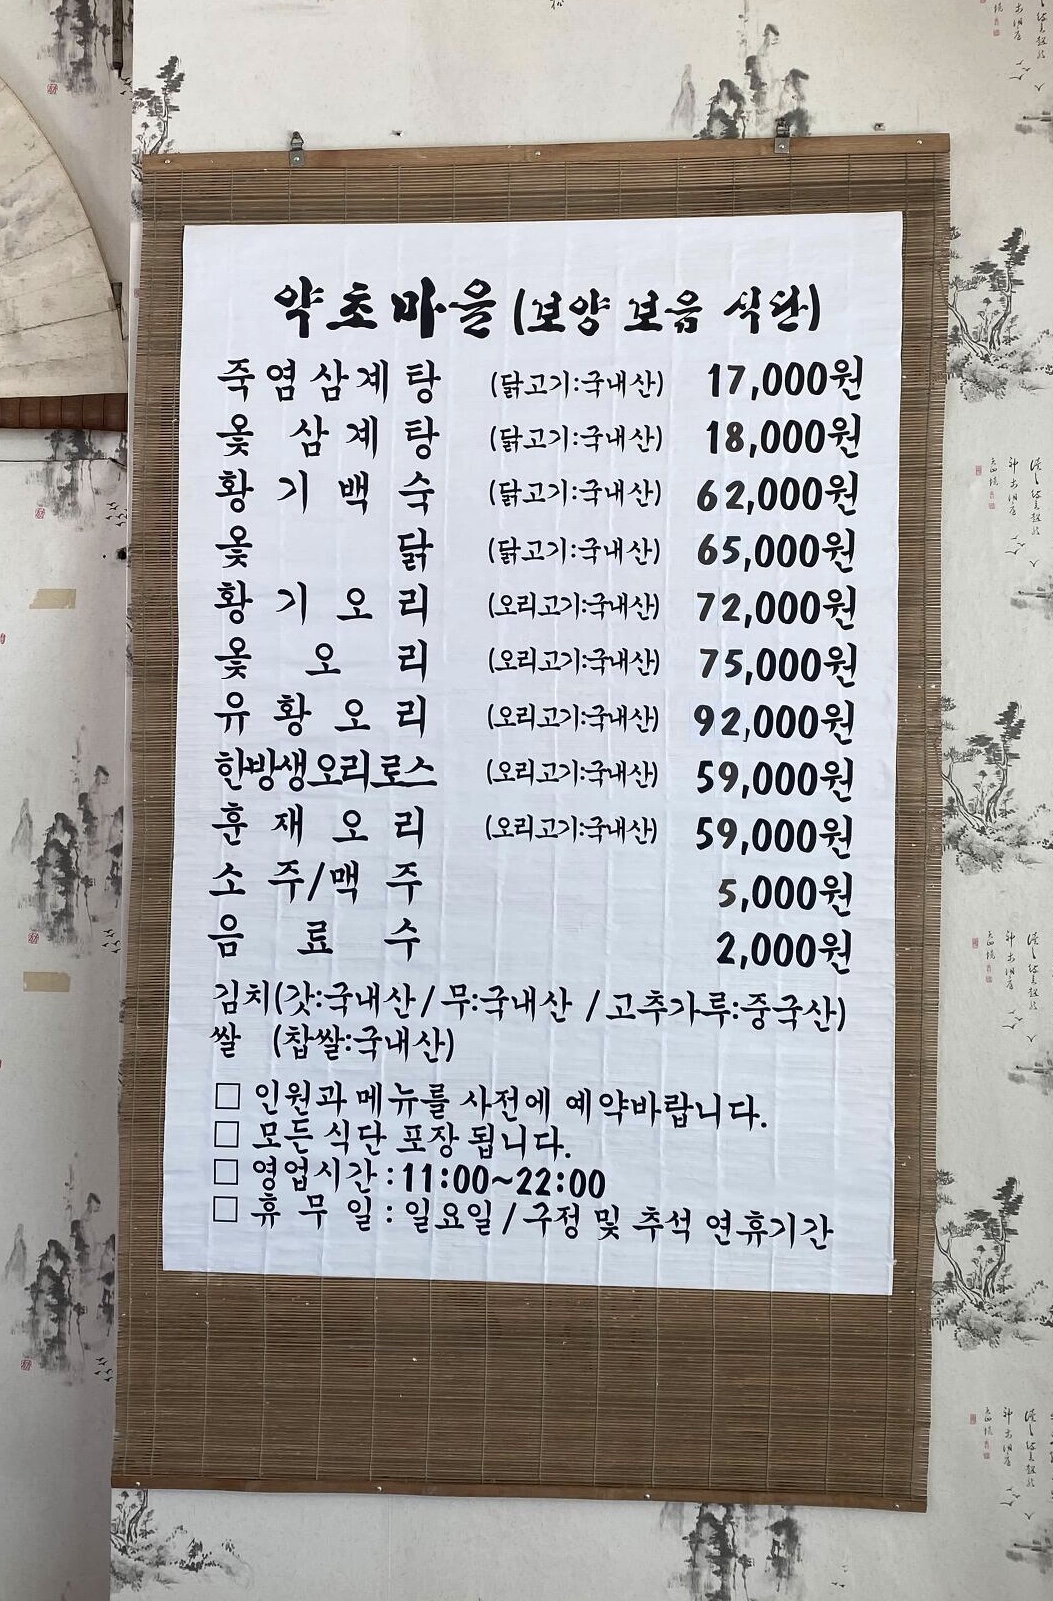 약초마을 (보양 보음 식단)
죽염삼계탕 (닭고기:국내산) 17,000원
옻 삼계탕 (닭고기:국내산) 18,000원
황기백숙 (닭고기:국내산) 62,000원
옻 닭 (닭고기:국내산) 65,000원
황기오리 (오리고기:국내산) 72,000원
옻 오 리 (오리고기:국내산) 75,000원
유황오리 (오리고기:국내산) 92,000원
한방생오리로스 (오리고기:국내산) 59,000원
훈재오리 (오리고기:국내산) 59,000원
소주/맥주 5,000원
음료수 2,000원
김치(갓:국내산/무:국내산 /고추가루:중국산)
쌀 (찹쌀:국내산)
□ 인원과 메뉴를 사전에 예약바랍니다.
□ 모든 식단 포장 됩니다.
□ 영업시간:11:00~22:00
□ 휴 무 일 : 일요일/구정 및 추석 연휴기간